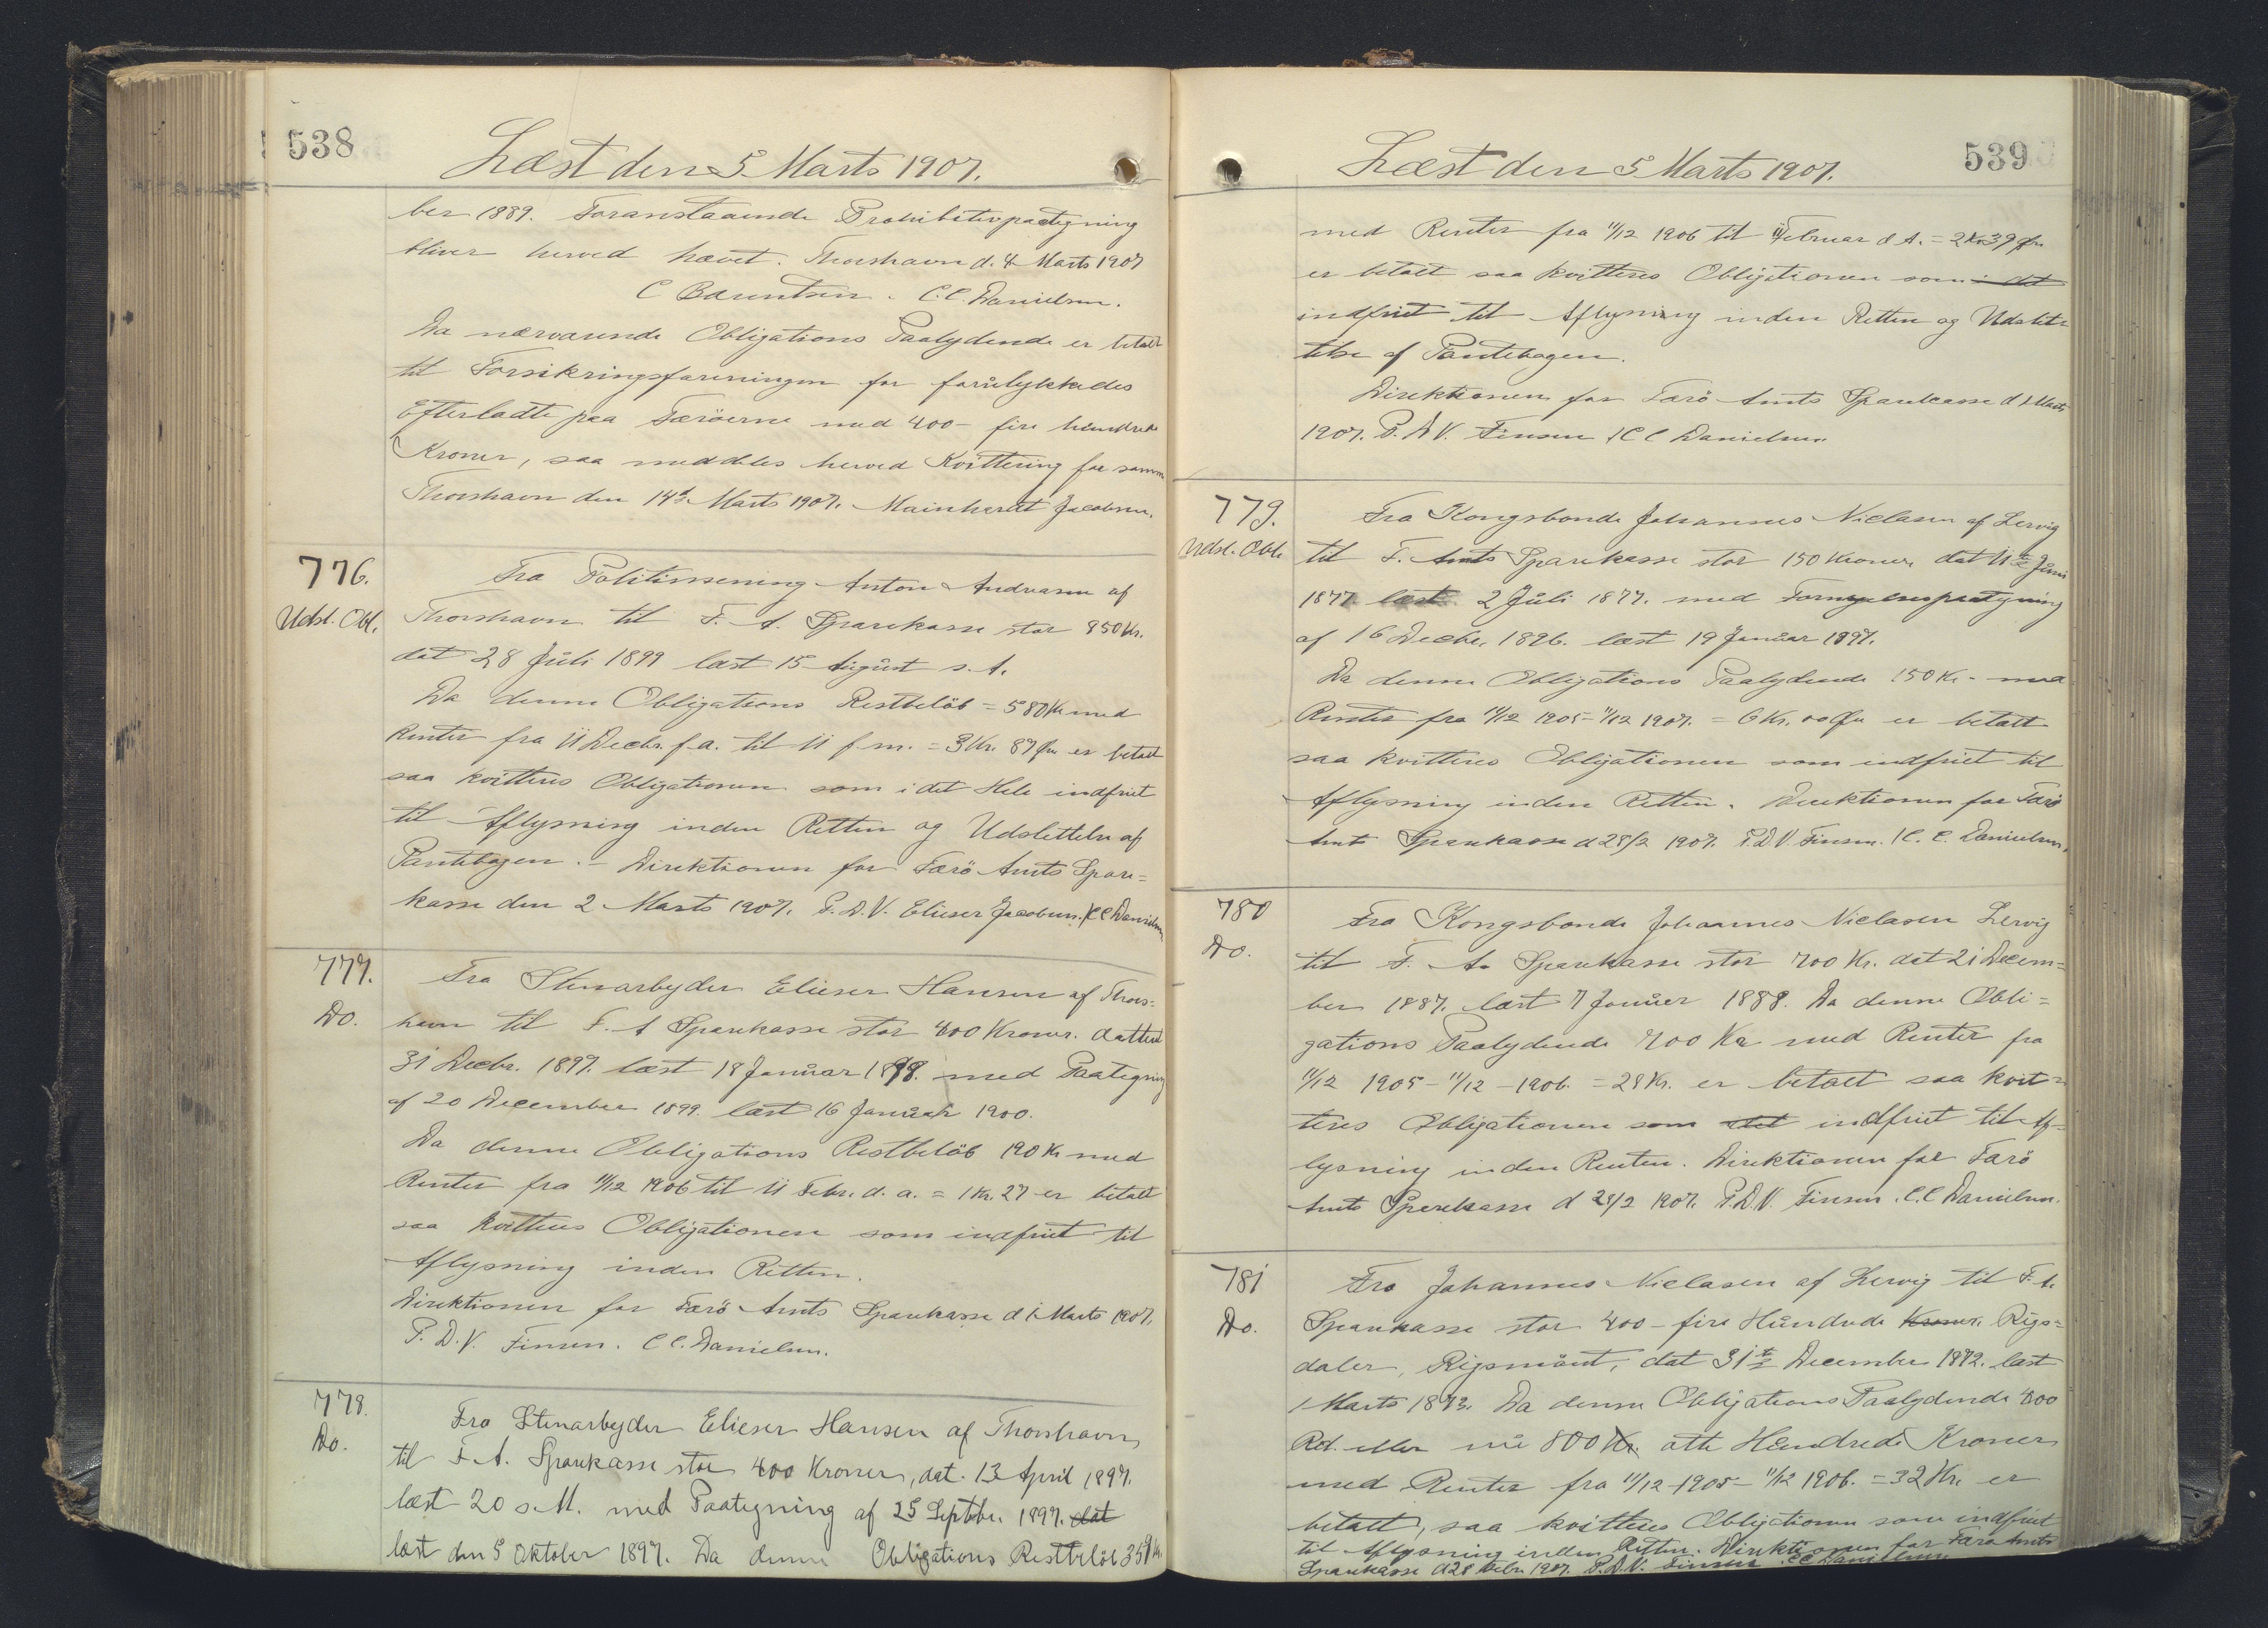 538
Læst den 5 Marts 1907.
ber 1889. Foranstaaende Prohibitivpaategning
bliver herved hævet. Thorshavn d. 4 Marts 1907
C Bærentsen. C.C. Danielsen.
Da nærværende Obligations Paalydende er betalt
til Forsikringsforeningen for forulykkedes
Efterladte paa Færöerne med 400 - fire hundrede
Kroner, saa meddeles herved Kvittering for samme
Thorshavn den 14de Marts 1907. Mainhardt Jacobsen.
776.
Udsl. Obl.
Fra Politibetjent Anton Andreasen af
Thorshavn til F. A. Sparekasse stor 850 Kr.
dat 28 Juli 1899 læst 15 August s. A.
Da denne Obligations Restbelöb = 580 Kr med
Renter fra 11 Decbr. f. a. til 11 f. m. = 3 Kr. 87 Öre er betalt
saa kvitteres Obligationen som i det Hele indfriet
til Aflysning inden Retten og Udslettelse af
Pantebogen. - Direktionen for Færö Amts Spare=
kasse den 2 Marts 1907. P. D. V. Elieser Jacobsen. / C C Danielsen
777.
Do.
Fra Stenarbejder Elieser Hansen af Thors=
havn til F. A Sparekasse stor 400 Kroner. datteret
31 Decbr. 1897. læst 18 Januar 1898. med Paategning
af 20 December 1899. læst 16 Januar 1900.
Da denne Obligations Restbelöb 190 Kr med
Renter fra 11/12 1906 til 11 Febr. d. a. = 1 Kr. 27 er betalt
saa kvitteres Obligationen som indfriet til
Aflysning inden Retten.
Direktionen for Færö Amts Sparekasse d 1 Marts 1907.
P. D. V. Finsen. C C. Danielsen.
778.
Do.
Fra Stenarbejder Elieser Hansen af Thorshavn
til F. A. Sparekasse stor 400 Kroner, dat. 13 April 1897.
læst 20 s. M. med Paategning af 25 Septbr. 1897. dat
læst den 5 Oktober 1897. Da denne Obligations Restbelöb 359 Kr.
539
Læst den 5 Marts 1907.
med Renter fra 11/12 1906 til 11 Februar d A. = 2 Kr 39 Öre
er betalt saa kvitteres Obligationen som i det
indfriet til Aflysning inden Retten og Udslet=
telse af Pantebogen.
Direktionen for Færö Amts Sparekasse d 1 Marts
1907. P. D V. Finsen / C C Danielsen
779.
Udsl. Obl.
Fra Kongsbonde Johannes Niclasen af Lervig
til F. Amts Sparekasse stor 150 Kroner dat 11te Juni
1877 læst 2 Juli 1877. med Fornyelsespaategning
af 16 Decbr. 1896. læst 19 Januar 1897.
Da denne Obligations Paalydende 150 Kr. - med
Renter fra 11/12 1905 - 11/12 1907. = 6 Kr. 00 Öre er betalt
saa kvitteres Obligationen som indfriet til
Aflysning inden Retten. Direktionen for Færö
Amts Sparekasse d 28/2 1907. P. D V. Finsen. / C. C. Danielsen.
780
Do.
Fra Kongsbonde Johannes Niclasen Lervig
til F. A. Sparekasse stor 700 Kr. dat 21 Decem=
ber 1887. læst 7 Januar 1888. Da denne Obli=
gations Paalydende 700 Kr med Renter fra
11/12 1905 - 11/12 - 1906. = 28 Kr. er betalt saa kvit=
teres Obligationen som det indfriet til Af=
lysning inden Renten. Direktionen for Færö
Amts Sparekasse d 28/2 1907. P. D. V. Finsen. C. C Danielsen.
781
Do.
Fra Johannes Niclasen af Lervig til F. A.
Sparekasse stor 400 - fire Hundrede Kroner. Rigs=
daler, Rigsmönt, dat 31te December 1872. læst
1 Marts 1873. Da denne Obligations Paalydende 400
Rd. eller nu 800 Kr. otte Hundrede Kroner
med Renter fra 11/12 - 1905 - 11/12 1906. = 32 Kr. er
betalt, saa kvitteres Obligationen som indfriet
til Aflysning inden Retten. Direktionen for Færö Amts
Sparekasse d 28 Febr. 1907. P. D. V. Finsen C C Danielsen